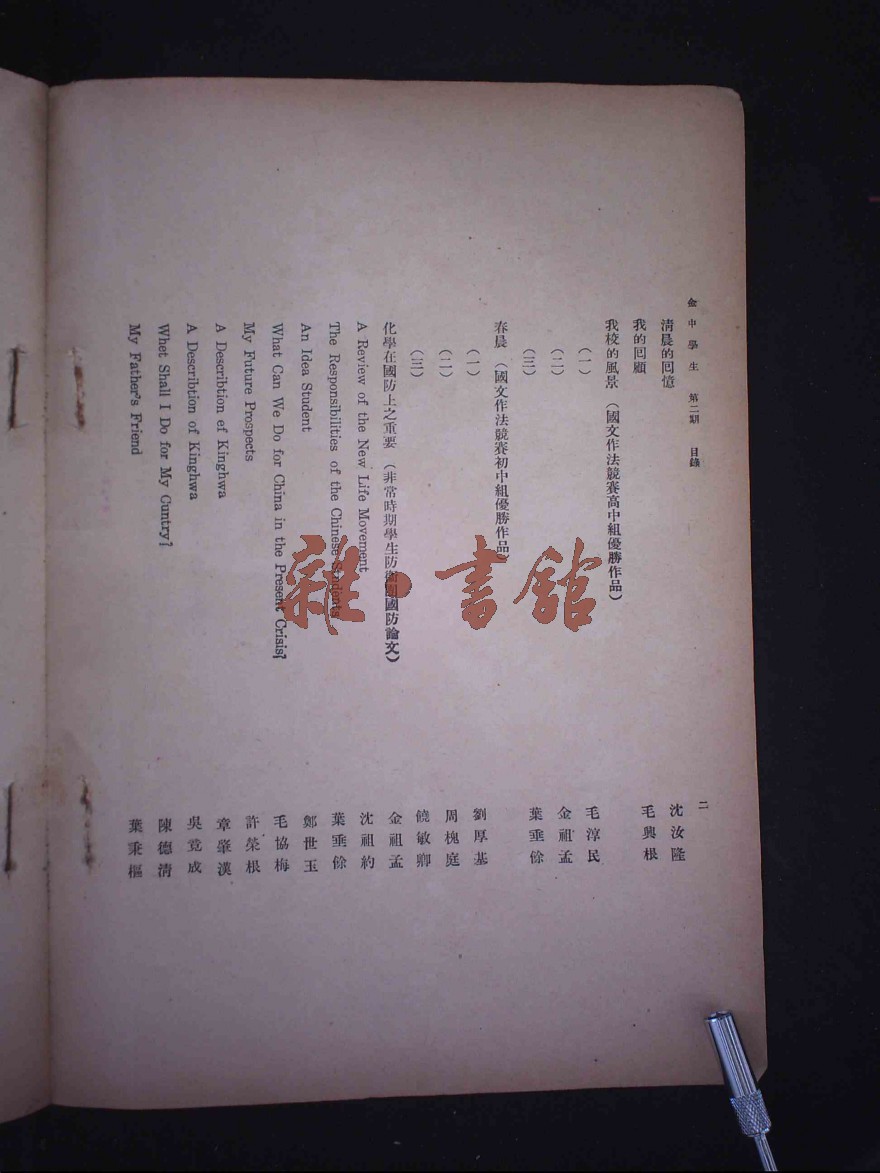 金中學生 第二期 目錄 二
清晨的囘憶 沈汝隆
我的囘顧 毛興根
我校的風景 (國文作法競賽高中組優勝作品)
(一) 毛淳民
(二) 金祖孟
(三) 葉垂餘
春晨 (國文作法競賽初中組優勝作品)
(一) 劉厚基
(二) 周槐庭
(三) 饒敏卿
化學在國防上之重要 (非常時期學生防衛團國防論文) 金祖孟
A Review of the New Life Movement 沈祖約
The Responsibilities of the Chinese Students 葉垂餘
An Idea Student 鄭世玉
What Can We Do for China in the Present Crisis? 毛協梅
My Future Prospects 許榮根
A Describtion ef Kinghwa 章肇漢
A Describtion of Kinghwa 吳竟成
Whet Shall I Do for My Cuntry? 陳德清
My Father's Friend 葉秉樞
雜·書館